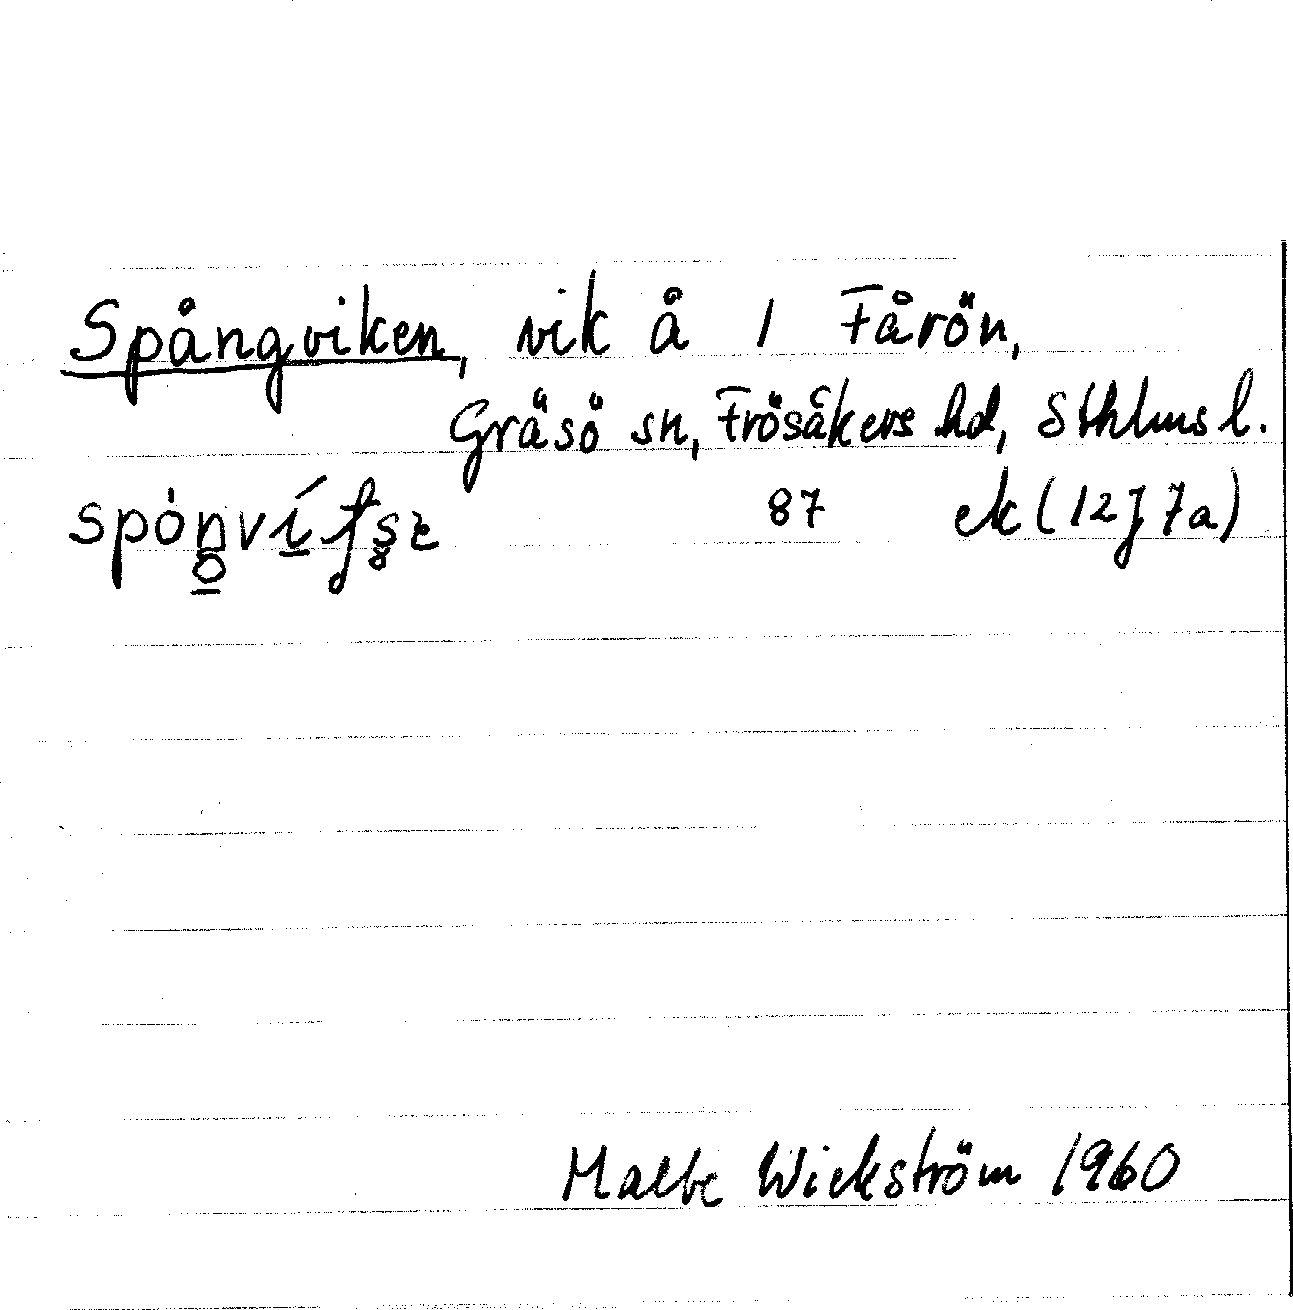 Spångviken, vik å 1 Fårön,
Gräsö sn, Frösåkers hd, Sthlms l.
87 ek (12J7a)
Wickström 1960